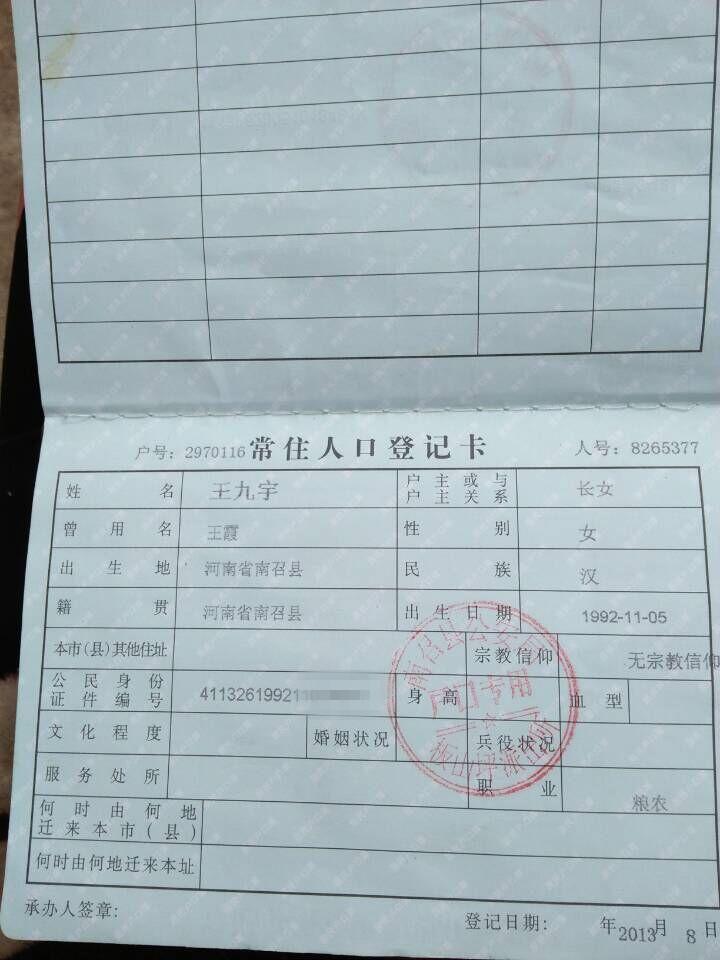 户号：2970116 常住人口登记卡 人号：8265377
姓名 王九宇 户主或与户主关系 长女
曾用名 王霞 性别 女
出生地 河南省南召县 民族 汉
籍贯 河南省南召县 出生日期 1992-11-05
本市（县）其他住址 宗教信仰 无宗教信仰
公民身份证件编号 41132619921 身高 血型
文化程度 婚姻状况 兵役状况
服务处所 职业 粮农
何时由何地迁来本市（县）
何时由何地迁来本址
承办人签章： 登记日期： 年2013月 8日
南召县公安局
户口专用
板山坪派出所